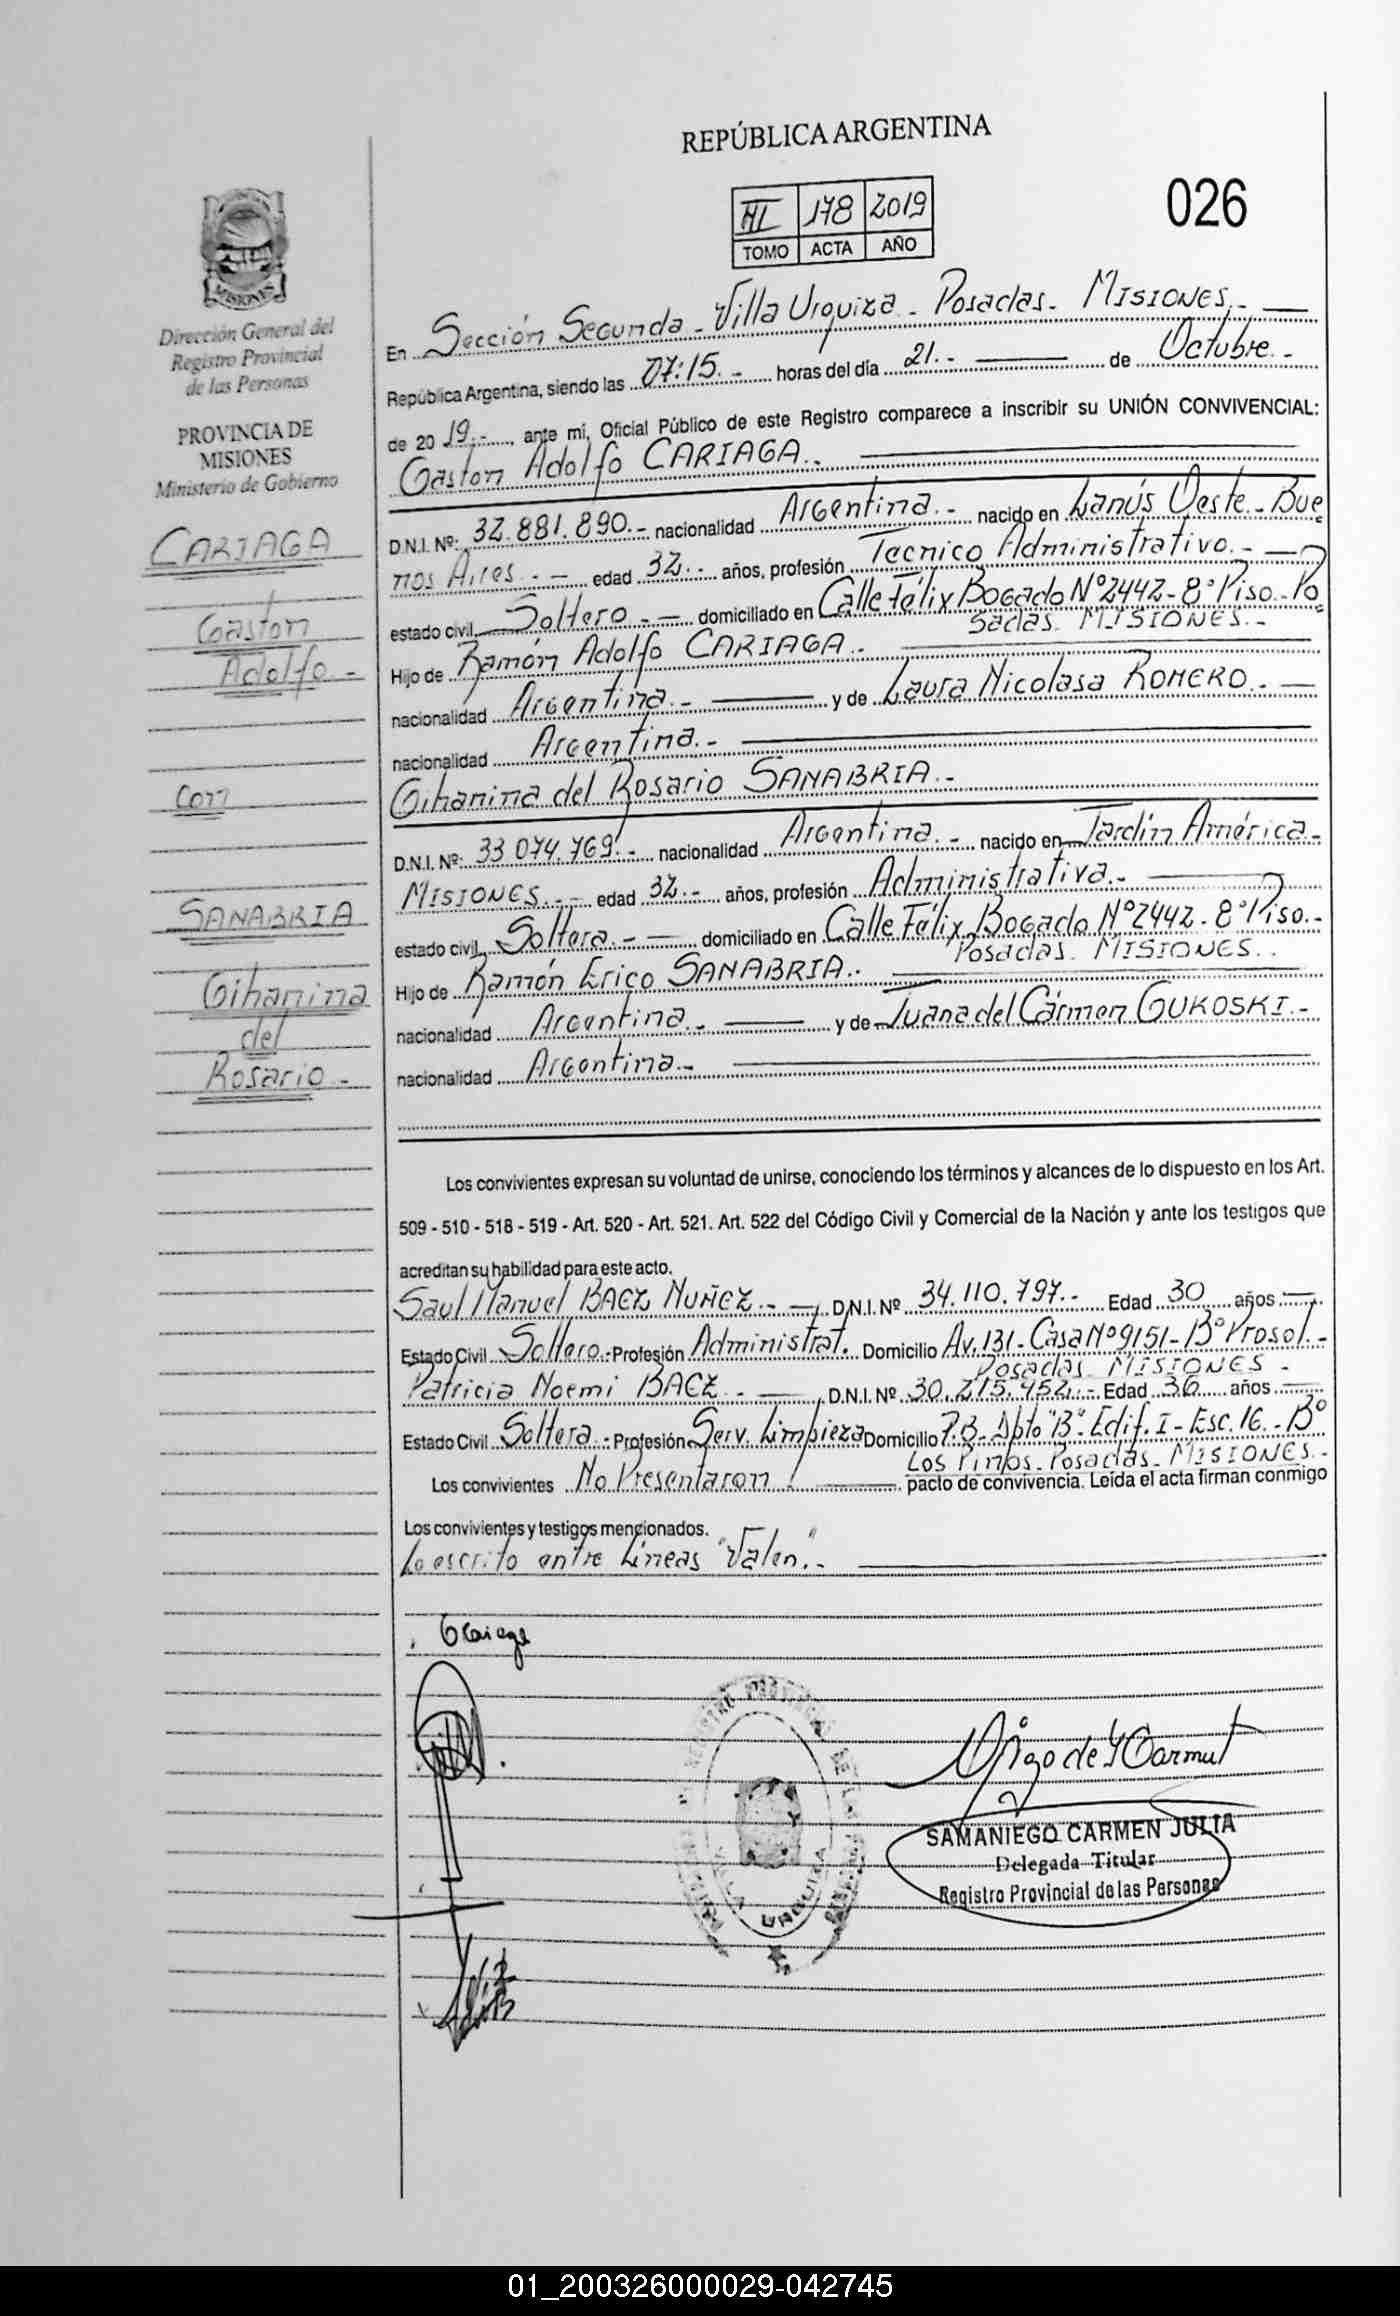 REPÚBLICA ARGENTINA
026
III 178 2019
TOMO ACTA AÑO
MISIONES
Dirección General del
Registro Provincial
de las Personas
PROVINCIA DE
MISIONES
Ministerio de Gobierno
CARIAGA
Gastón
Adolfo.-
Con
SANABRIA
Gihanina
del
Rosario.-
En Sección Segunda - Villa Urquiza - Posadas - MISIONES.-
República Argentina, siendo las 07:15.- horas del día 21.- de Octubre.-
de 2019.-, ante mí, Oficial Público de este Registro comparece a inscribir su UNIÓN CONVIVENCIAL:
Gastón Adolfo CARIAGA.
D.N.I. Nº: 32.881.890.- nacionalidad Argentina.- nacido en Lanús Oeste - Bue
nos Aires.- edad 32.- años, profesión Tecnico Administrativo.-
estado civil Soltero.- domiciliado en Calle Félix Bogado Nº2442 - 8º Piso - Po
sadas. MISIONES.-
Hijo de Ramón Adolfo CARIAGA.
nacionalidad Argentina.- y de Laura Nicolasa ROMERO.-
nacionalidad Argentina.-
Gihanina del Rosario SANABRIA.-
D.N.I. Nº: 33.074.769.- nacionalidad Argentina.- nacido en Jardín América.-
MISIONES.- edad 32.- años, profesión Administrativa.-
estado civil Soltera.- domiciliado en Calle Félix Bogado Nº2442 - 8º Piso.-
Posadas. MISIONES.
Hijo de Ramón Erico SANABRIA.
nacionalidad Argentina.- y de Juana del Cármen GUKOSKI.-
nacionalidad Argentina.-
Los convivientes expresan su voluntad de unirse, conociendo los términos y alcances de lo dispuesto en los Art.
509 - 510 - 518 - 519 - Art. 520 - Art. 521. Art. 522 del Código Civil y Comercial de la Nación y ante los testigos que
acreditan su habilidad para este acto.
Saul Manuel BAEZ NUÑEZ.- D.N.I. Nº 34.110.797.- Edad 30 años
Estado Civil Soltero.- Profesión Administrat. Domicilio Av. 131 - Casa Nº9151 - Bº Prosol.-
Posadas. MISIONES.-
Patricia Noemi BAEZ.- D.N.I. Nº 30.215.452.- Edad 36 años
Estado Civil Soltera.- Profesión Serv. Limpieza Domicilio P.B. Dpto "B". Edif. I - Esc. 16.- Bº
Los Pinos - Posadas - MISIONES.-
Los convivientes No Presentaron pacto de convivencia. Leída el acta firman conmigo
Los convivientes y testigos mencionados.
Lo escrito entre Líneas "Valen".-
SAMANIEGO CARMEN JULIA
Delegada Titular
Registro Provincial de las Personas
VILLA URQUIZA
01_200326000029-042745